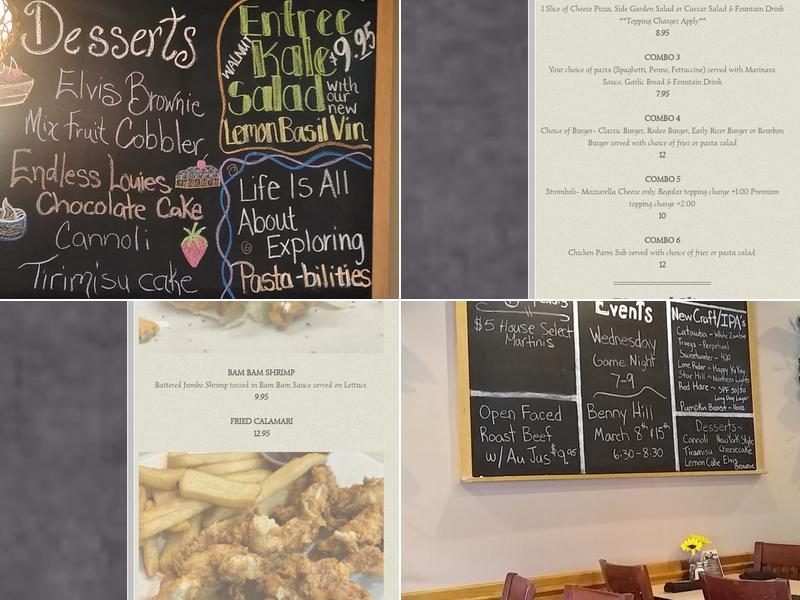 Desserts
Elvis Brownie
Mix Fruit Cobbler
Endless Louies
Chocolate Cake
Cannoli
Tirimisu cake
Entree
WALNUT Kale $9.95
Salad with
our
new
Lemon Basil Vin
Life Is All
About
Exploring
Pasta-bilities
1 Slice of Cheese Pizza, Side Garden Salad or Caesar Salad & Fountain Drink
**Topping Charges Apply**
8.95
COMBO 3
Your choice of pasta (Spaghetti, Penne, Fettuccine) served with Marinara
Sauce, Garlic Bread & Fountain Drink
7.95
COMBO 4
Choice of Burger- Classic Burger, Rodeo Burger, Early Rizer Burger or Bourbon
Burger served with choice of fries or pasta salad
12
COMBO 5
Stromboli- Mozzarella Cheese only. Regular topping charge +1.00 Premium
topping charge +2.00
10
COMBO 6
Chicken Parm Sub served with choice of fries or pasta salad.
12
BAM BAM SHRIMP
Battered Jumbo Shrimp tossed in Bam Bam Sauce served on Lettuce.
9.95
FRIED CALAMARI
12.95
$5 House Select
Martinis
Open Faced
Roast Beef
w/ Au Jus $9.95
Events
Wednesday
Game Night
7-9
Benny Hill
March 8th & 15th
6:30-8:30
New Craft/IPA's
Catawba - White Zombie
Troegs - Perpetual
Sweetwater - 420
Lone Rider - Happy Ya Yay
Star Hill - Northern Lights
Red Hare - SPF 50/50
Long Day Lager
Pumpkin Beast - None
Desserts-
Cannoli New York Style
Tiramisu Cheesecake
Lemon Cake Elvis
Brownie